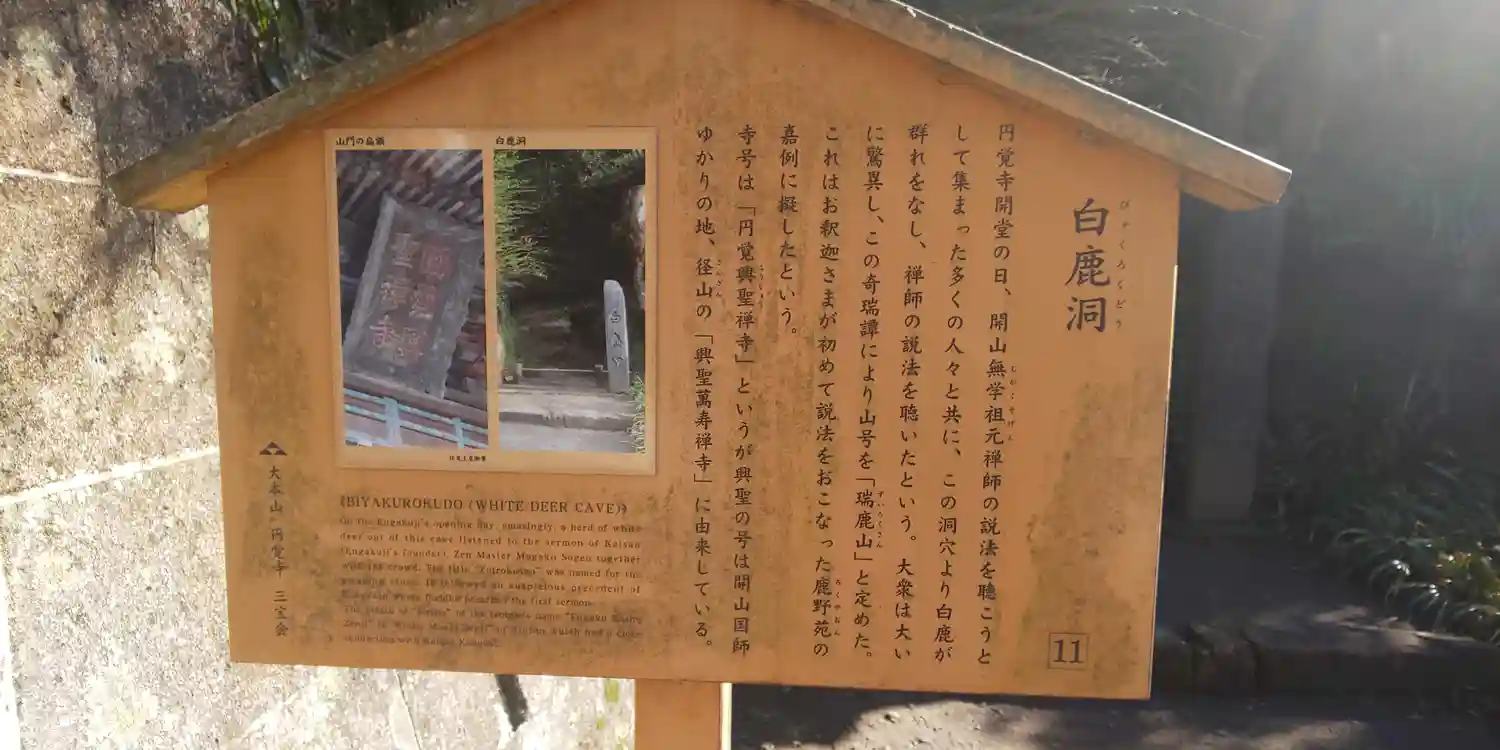 白鹿洞
びゃくろくどう
円覚寺開堂の日、開山無学祖元禅師の説法を聴こうと
むがくそげん
して集まった多くの人々と共に、この洞穴より白鹿が
群れをなし、禅師の説法を聴いたという。大衆は大い
に驚異し、この奇瑞譚により山号を「瑞鹿山」と定めた。
ずいろくさん
これはお釈迦さまが初めて説法をおこなった鹿野苑の
ろくやおん
嘉例に擬したという。
寺号は「円覚興聖禅寺」というが興聖の号は開山国師
こうしょう
ゆかりの地、径山の「興聖萬寿禅寺」に由来している。
きんざん
11
山門の扁額
白鹿洞
《BIYAKUROKUDO (WHITE DEER CAVE)》
On the Engakuji's opening day, amazingly, a herd of white
deer out of this cave listened to the sermon of Kaisan
(Engakuji's founder), Zen Master Mugaku Sogen together
with the crowd. The title "Zuirokusan" was named for the
amazing story. It followed an auspicious precedent of
where Buddha preached the first sermon.
大本山 円覚寺 三宝会